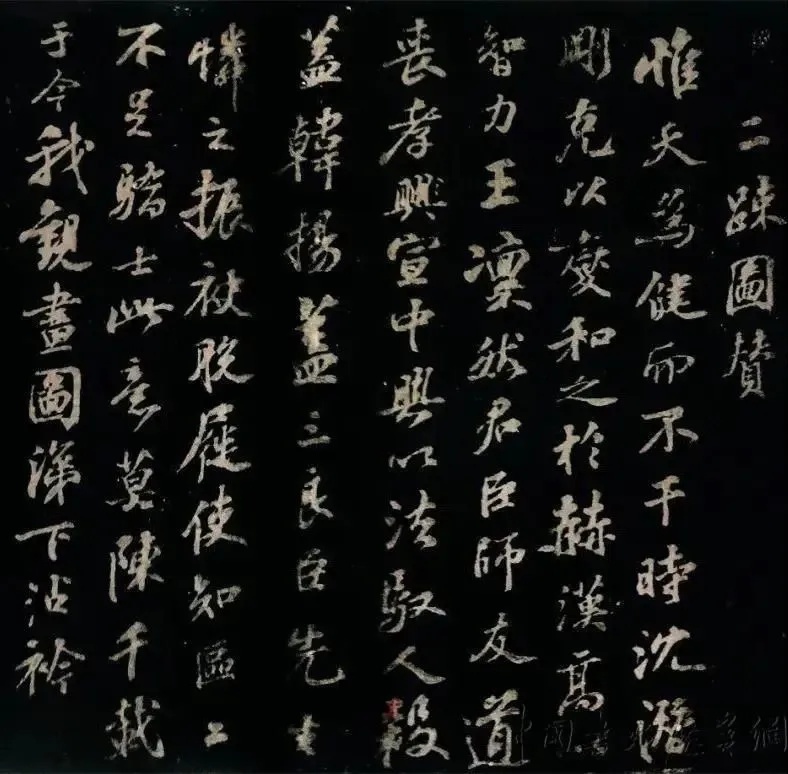 二踈圖贊
惟天爲健而不干時沈潛
剛克以燮和之於赫漢高
智力王凜然君臣師友道
喪孝興宣中興以法馭人殺
蓋韓揚蓋三良臣先生
憐之振袂脫屣使知區〻
不足驕士此意莫陳千載
于今我觀畫圖涕下沾衿